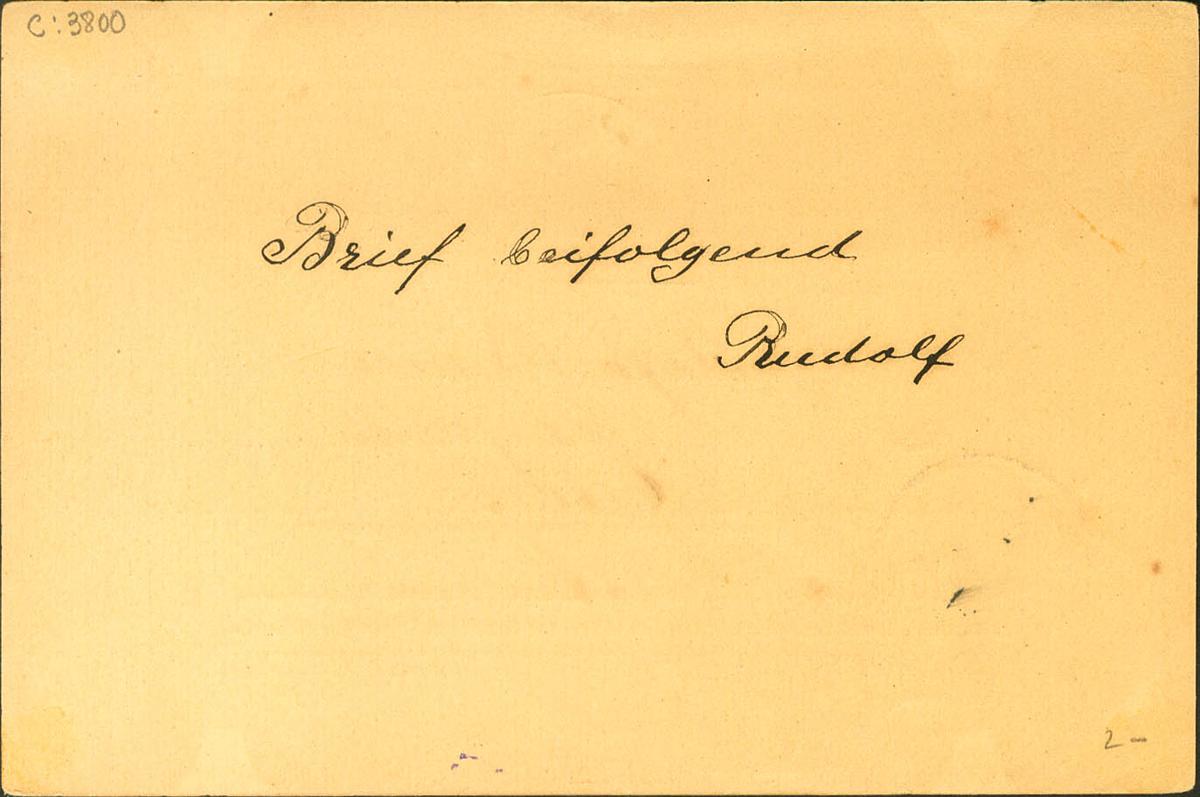 C: 3800
Brief beifolgend
Rudolf
2 -